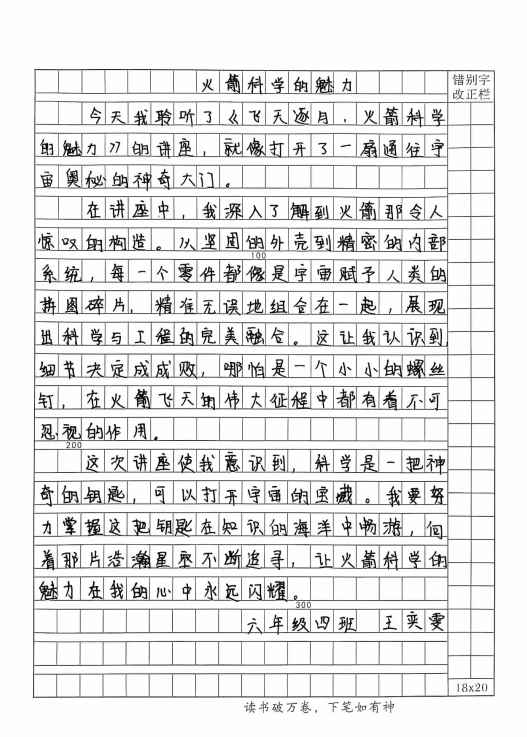 错别字
改正栏
火箭科学的魅力
今天我聆听了《飞天逐月,火箭科学
的魅力》的讲座,就像打开了一扇通往宇
宙奥秘的神奇大门。
在讲座中,我深入了解到火箭那令人
惊叹的构造。从坚固的外壳到精密的内部
100
系统,每一个零件都像是宇宙赋予人类的
拼图碎片,精准无误地组合在一起,展现
出科学与工程的完美融合。这让我认识到,
细节决定成成败,哪怕是一个小小的螺丝
钉,在火箭飞天的伟大征程中都有着不可
忽视的作用。
200
这次讲座使我意识到,科学是一把神
奇的钥匙,可以打开宇宙的宝藏。我要努
力掌握这把钥匙在知识的海洋中畅游,向
着那片浩瀚星丞不断追寻,让火箭科学的
魅力在我的心中永远闪耀。
300
六年级四班 王奕雯
18x20
读书破万卷,下笔如有神